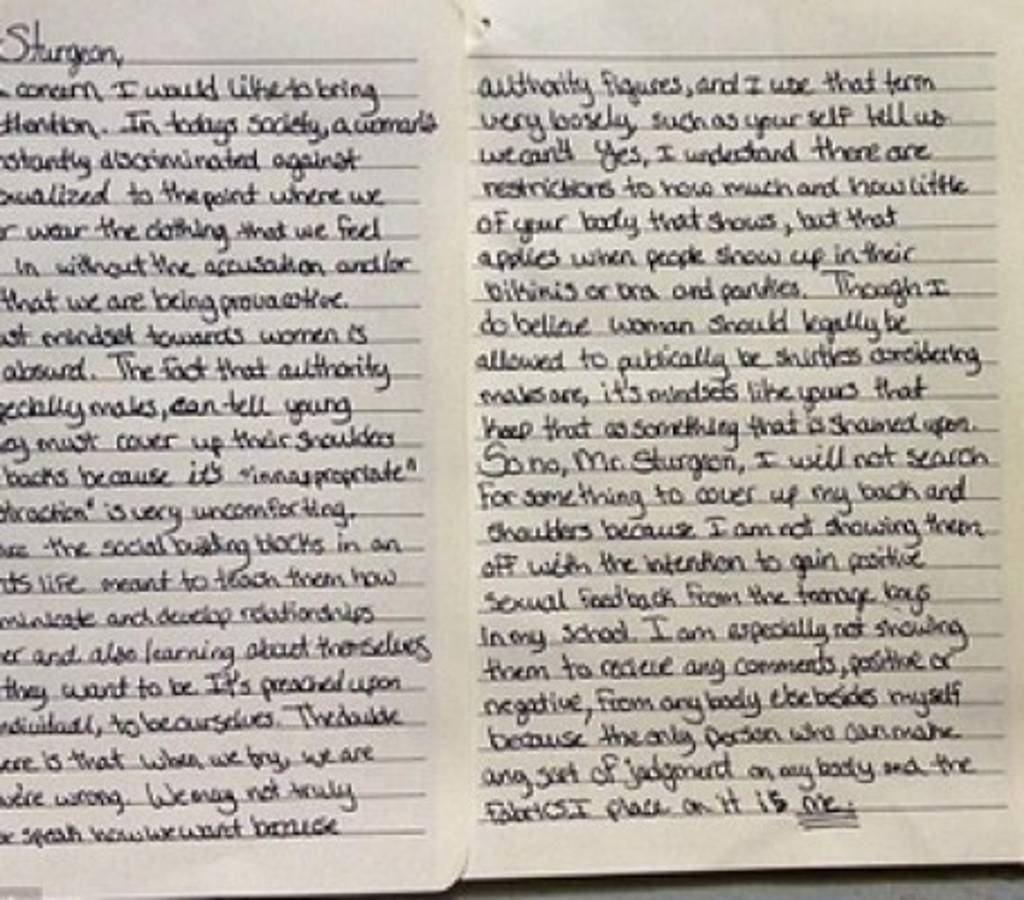 Sturgeon,
concern I would like to bring
attention. In todays society, a woman is
nstantly discriminated against
xualized to the point where we
or wear the clothing that we feel
in without the accusation and/or
that we are being provacative.
ust mindset towards women is
absurd. The fact that authority
pecially males, can tell young
ey must cover up their shoulders
backs because it's "innappropriate"
straction" is very uncomforting.
are the social building blocks in an
nts life meant to teach them how
municate and develop relationships
her and also learning about themselves
they want to be. It's preached upon
ndividuall, to be ourselves. The double
ere is that when we try, we are
we're wrong. We may not truly
or speak how we want because
authority figures, and I use that term
very loosely, such as your self tell us
we can't. Yes, I understand there are
restrictions to how much and how little
of your body that shows, but that
applies when people show up in their
bikinis or bra and panties. Though I
do believe woman should legally be
allowed to publically be shirtless considering
males are, it's mindsets like yours that
keep that as something that is shamed upon.
So no, Mr. Sturgeon, I will not search
for something to cover up my back and
shoulders because I am not showing them
off with the intention to gain positive
sexual feedback from the teenage boys
in my school. I am especially not showing
them to recieve any comments, positive or
negative, from anybody else besides myself
because the only person who can make
any sort of judgment on my body and the
fabrics I place on it is me.